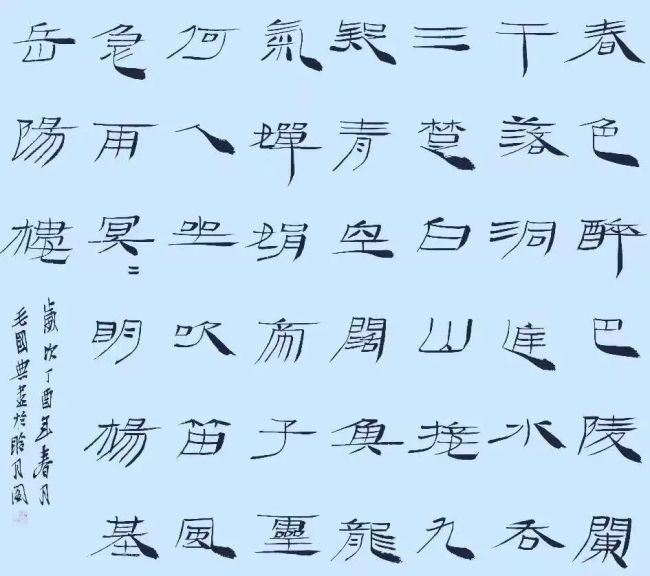 春色醉巴陵闌
干落洞廷水吞
三楚白山接九
疑青空闊魚龍
氣嬋娟帝子靈
何人坐吹笛風
急雨冥二明楊基
岳陽樓
歲次丁酉年春月
毛國典書於月閣